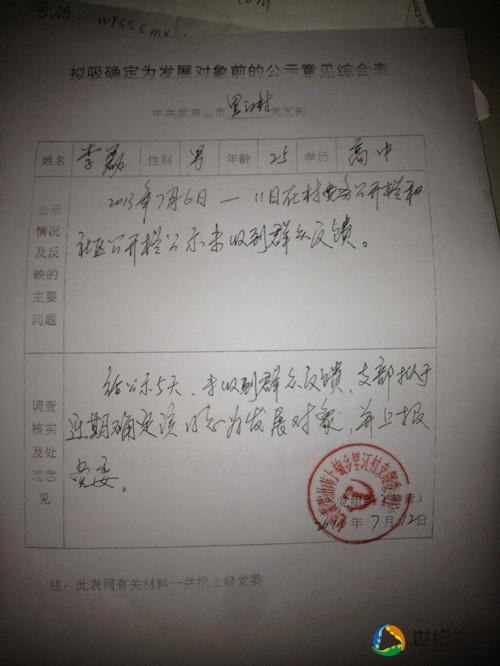 wrsssmx
拟吸确定为发展对象前的公示意见综合表
中共武夷山市里江村党支部
姓名 李磊 性别 男 年龄 25 学历 高中
公示情况及反映的主要问题
2013年7月6日—11日在村党务公开栏和
社区公开栏公示未收到群众反馈。
调查核实及处理意见
经公示5天,未收到群众反馈,支部拟于
近期确定该同志为发展对象,并上报
党委。
年7月12日
注:此表同有关材料一并报上级党委
世纪